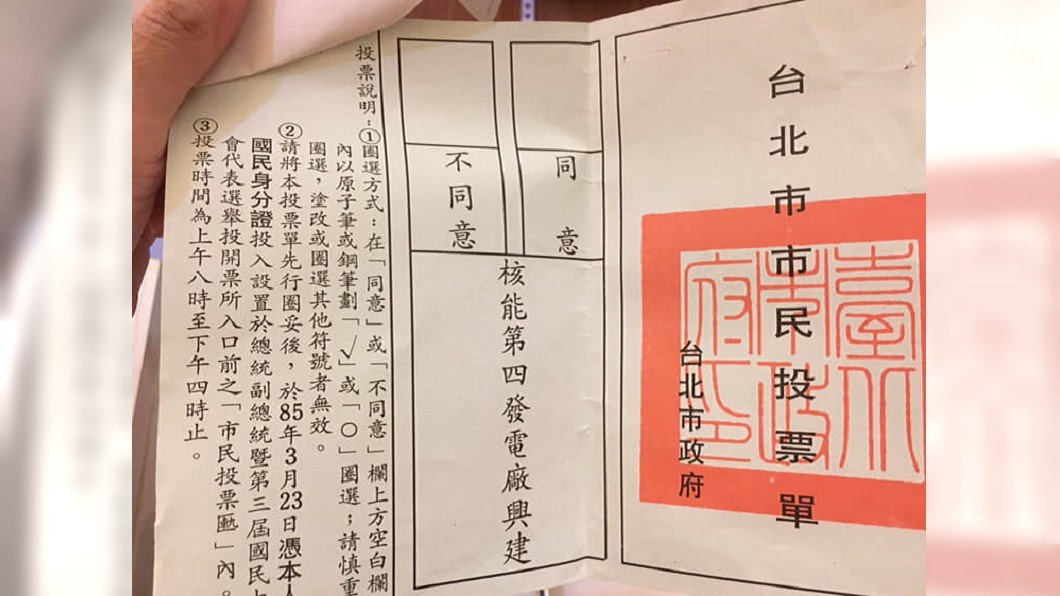 台北市市民投票單
台北市政府
臺北市政府印
同意
不同意
核能第四發電廠興建
投票說明：①圈選方式：在「同意」或「不同意」欄上方空白欄
內以原子筆或鋼筆劃「✓」或「○」圈選；請慎重
圈選，塗改或圈選其他符號者無效。
②請將本投票單先行圈妥後，於85年3月23日憑本人
國民身分證投入設置於總統副總統暨第三屆國民大
會代表選舉投開票所入口前之「市民投票匭」內。
③投票時間為上午八時至下午四時止。